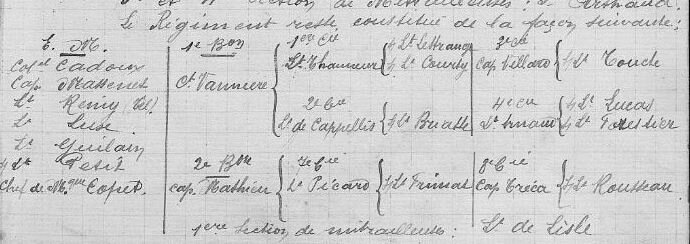 et        Section de Mitrailleuses :
Le Régiment reste constitué de la façon suivante :
E. M.    1er Bon    1ère Cie    S/Lt Lettrange    3e Cie
Col. Cadoux    Ct Vanniere    Lt Thanneur    S/Lt Courby    Cap. Villard    S/Lt Touch
Cap. Mattenet
Lt Remy (Tel).    2e Cie    4e Cie    S/Lt Lucas
Lt Luse    Lt de Cappellis    S/Lt Buatte    Lt Arnaud    S/Lt Forestier
Lt Guilain
S/Lt Petit    2e Bon    7e Cie    8e Cie
Chef de M.que Copet.    Cap. Mathieu    Lt Picard    S/Lt Primat    Cap Tréca    S/Lt Rousseau
1ere Section de mitrailleuses :    Lt de Lisle